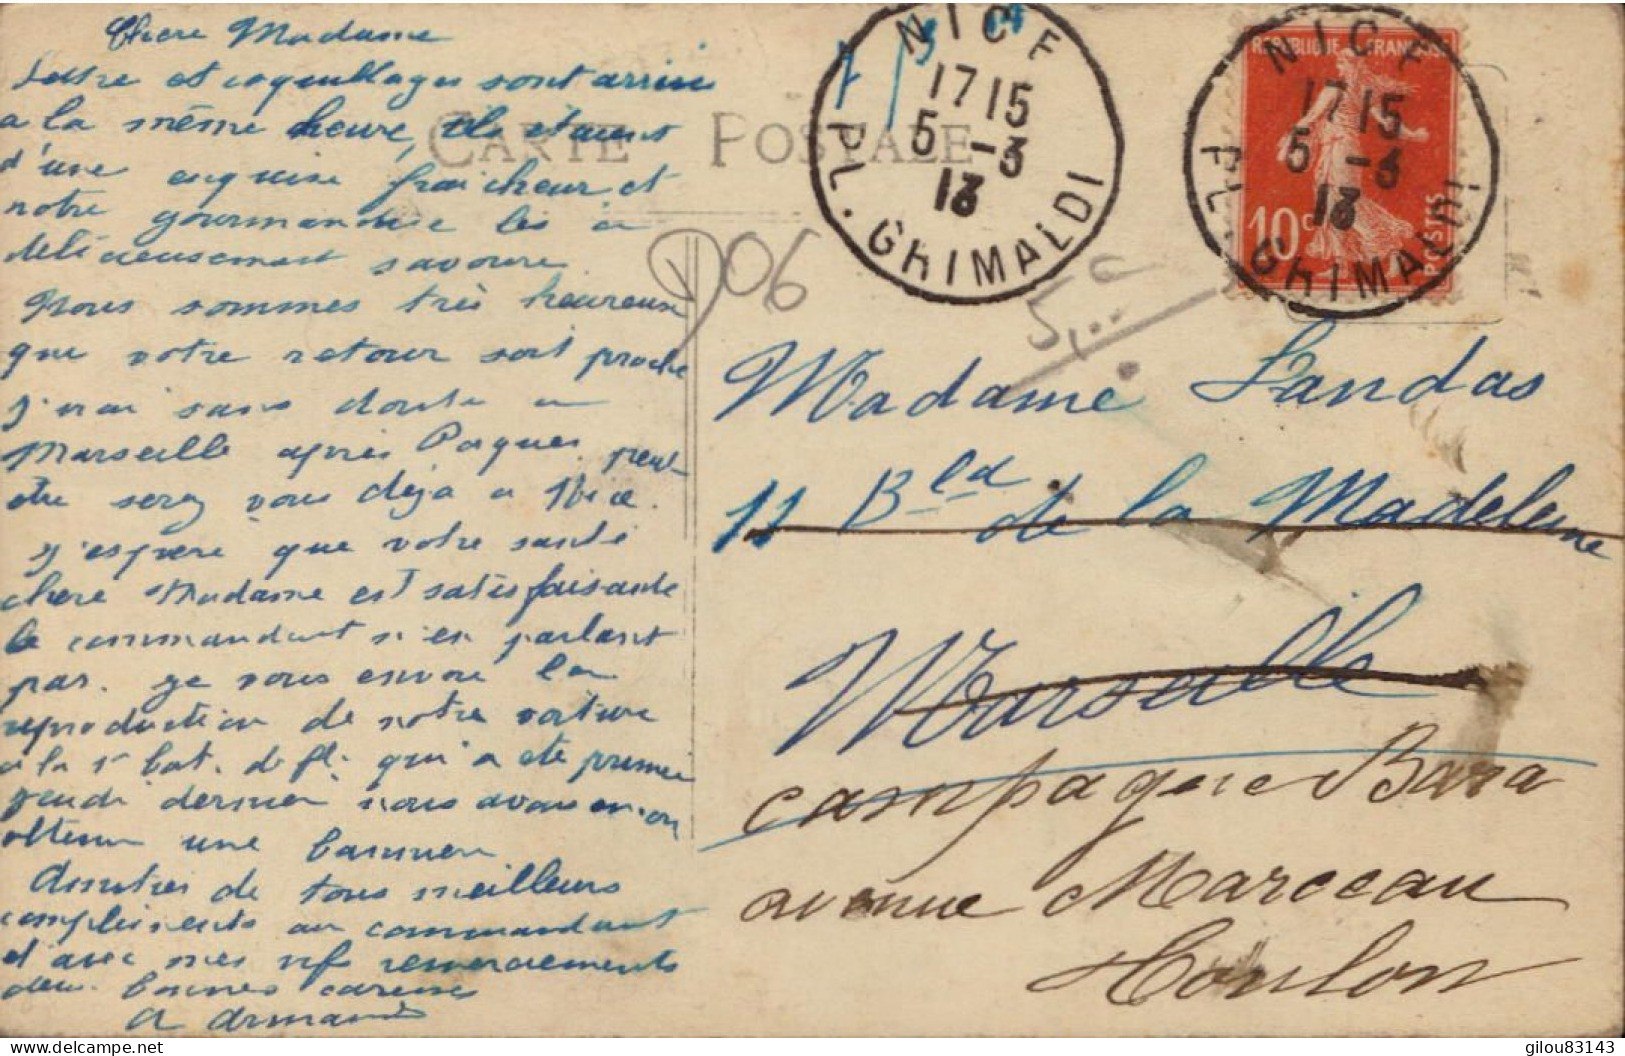 Chere Madame
Lettre et coquillages sont arrivés
a la même heure, ils etaient
d'une exquise fraicheur et
notre gourmandise les a
délicieusement savoure
Nous sommes très heureux
que votre retour soit proche
j'irai sans doute a
Marseille après Paques, peut
être serez vous déja a Nice.
j'espere que votre santé
chere Madame est satisfaisante
le commandant n'en parlant
pas. je vous envoie la
reproduction de notre voiture
a la 1e bat. de fl. qui a ete primée
jeudi dernier nous avons
obtenu une bannière
Amities de tous meilleurs
compliments au commandant
et avec mes vifs remerciements
bonnes caresses
A Armand
CARTE POSTALE
NICE
17 15
5 -3
13
PL. GRIMALDI
NICE
17 15
5 -3
13
PL. GRIMALDI
REPUBLIQUE FRANÇAISE
10c
POSTES
D06
5,00
Madame Landas
11 Bld de la Madeleine
Marseille
campagne Bara
avenue Marceau
Toulon
delcampe.net
gilou83143